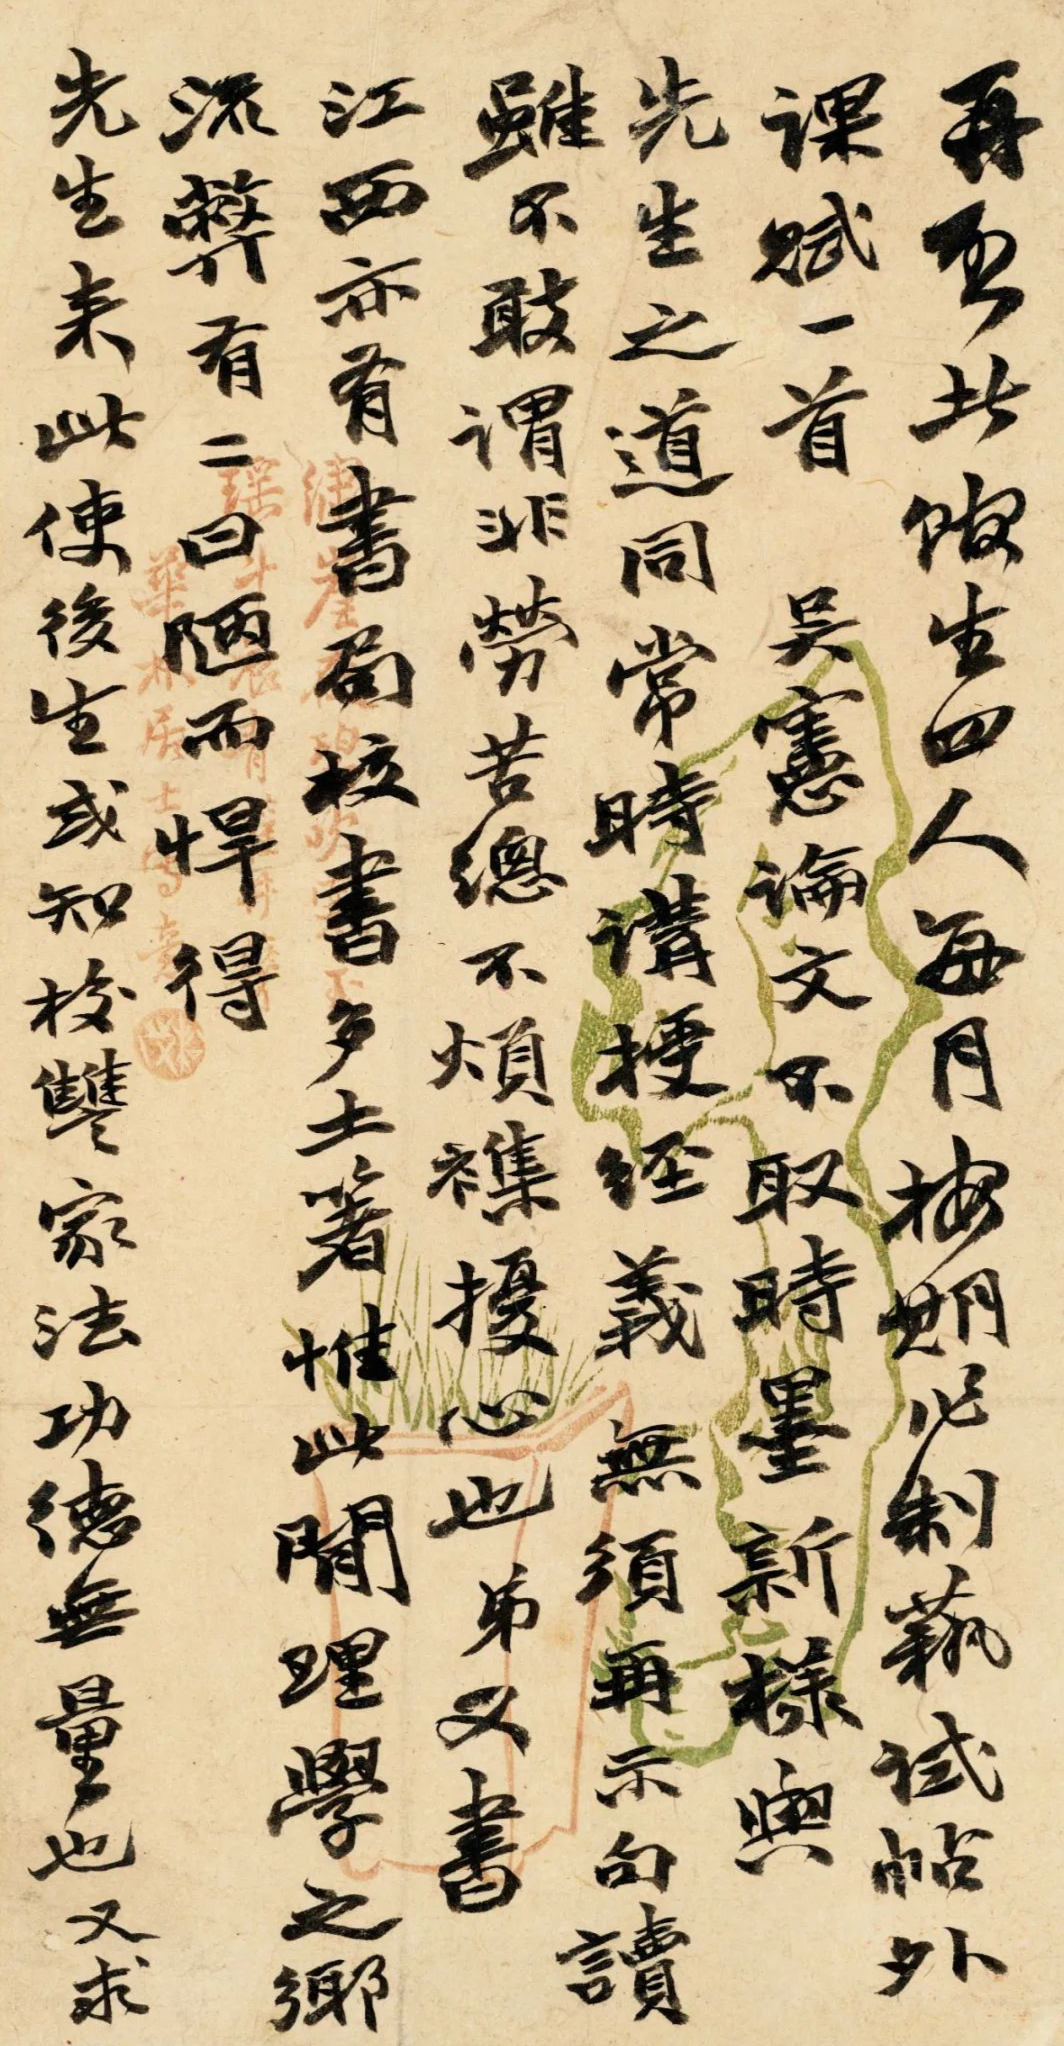 再至此館生四人每月按期作制藝試帖外
課賦一首　吳憲論文不取時墨新樣與
先生之道同常時講授經義無須再示句讀
雖不敢謂非勞苦總不煩襍擾心也弟又書
江西亦有書局校書多土著惟此間理學之鄉
流弊有二曰陋而悍得
先生來此使後生或知校讎家法功德無量也又求